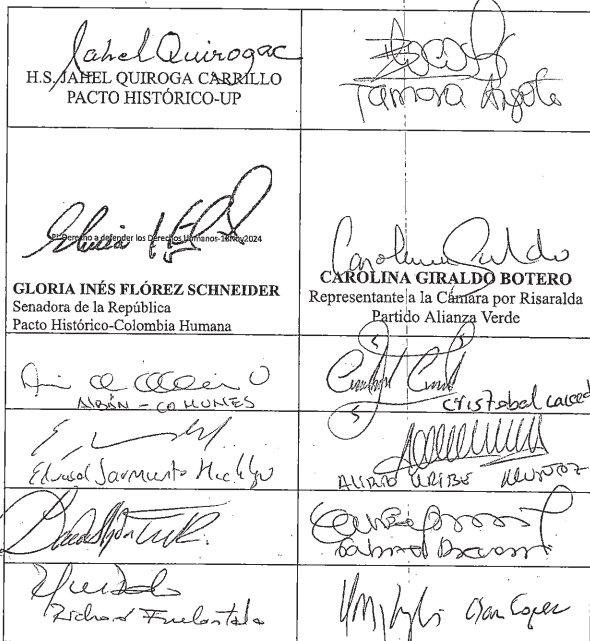 Jahel Quiroga C
H.S. JAHEL QUIROGA CARRILLO
PACTO HISTÓRICO-UP
Tamara Argote
PL Derecho a defender los Derechos Humanos-18Nov2024
GLORIA INÉS FLÓREZ SCHNEIDER
Senadora de la República
Pacto Histórico-Colombia Humana
Carolina Giraldo
CAROLINA GIRALDO BOTERO
Representante a la Cámara por Risaralda
Partido Alianza Verde
ALBÁN - COMUNES
Cristobal Caicedo
Eduard Sarmiento Hidalgo
ALIRIO URIBE MUÑOZ
Gabriel Becerra
Richard Fuelantala